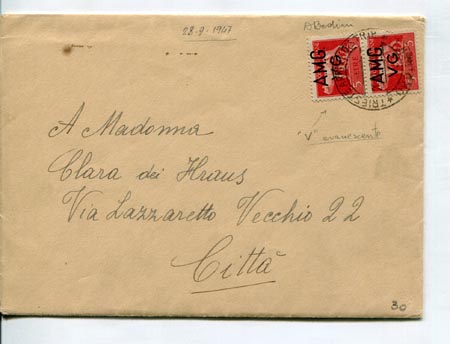 28.9.1947
AMG
VG
AMG
VG
"V" evanescente
A Madonna
Clara dei Hraus
Via Lazzaretto Vecchio 22
Città
30